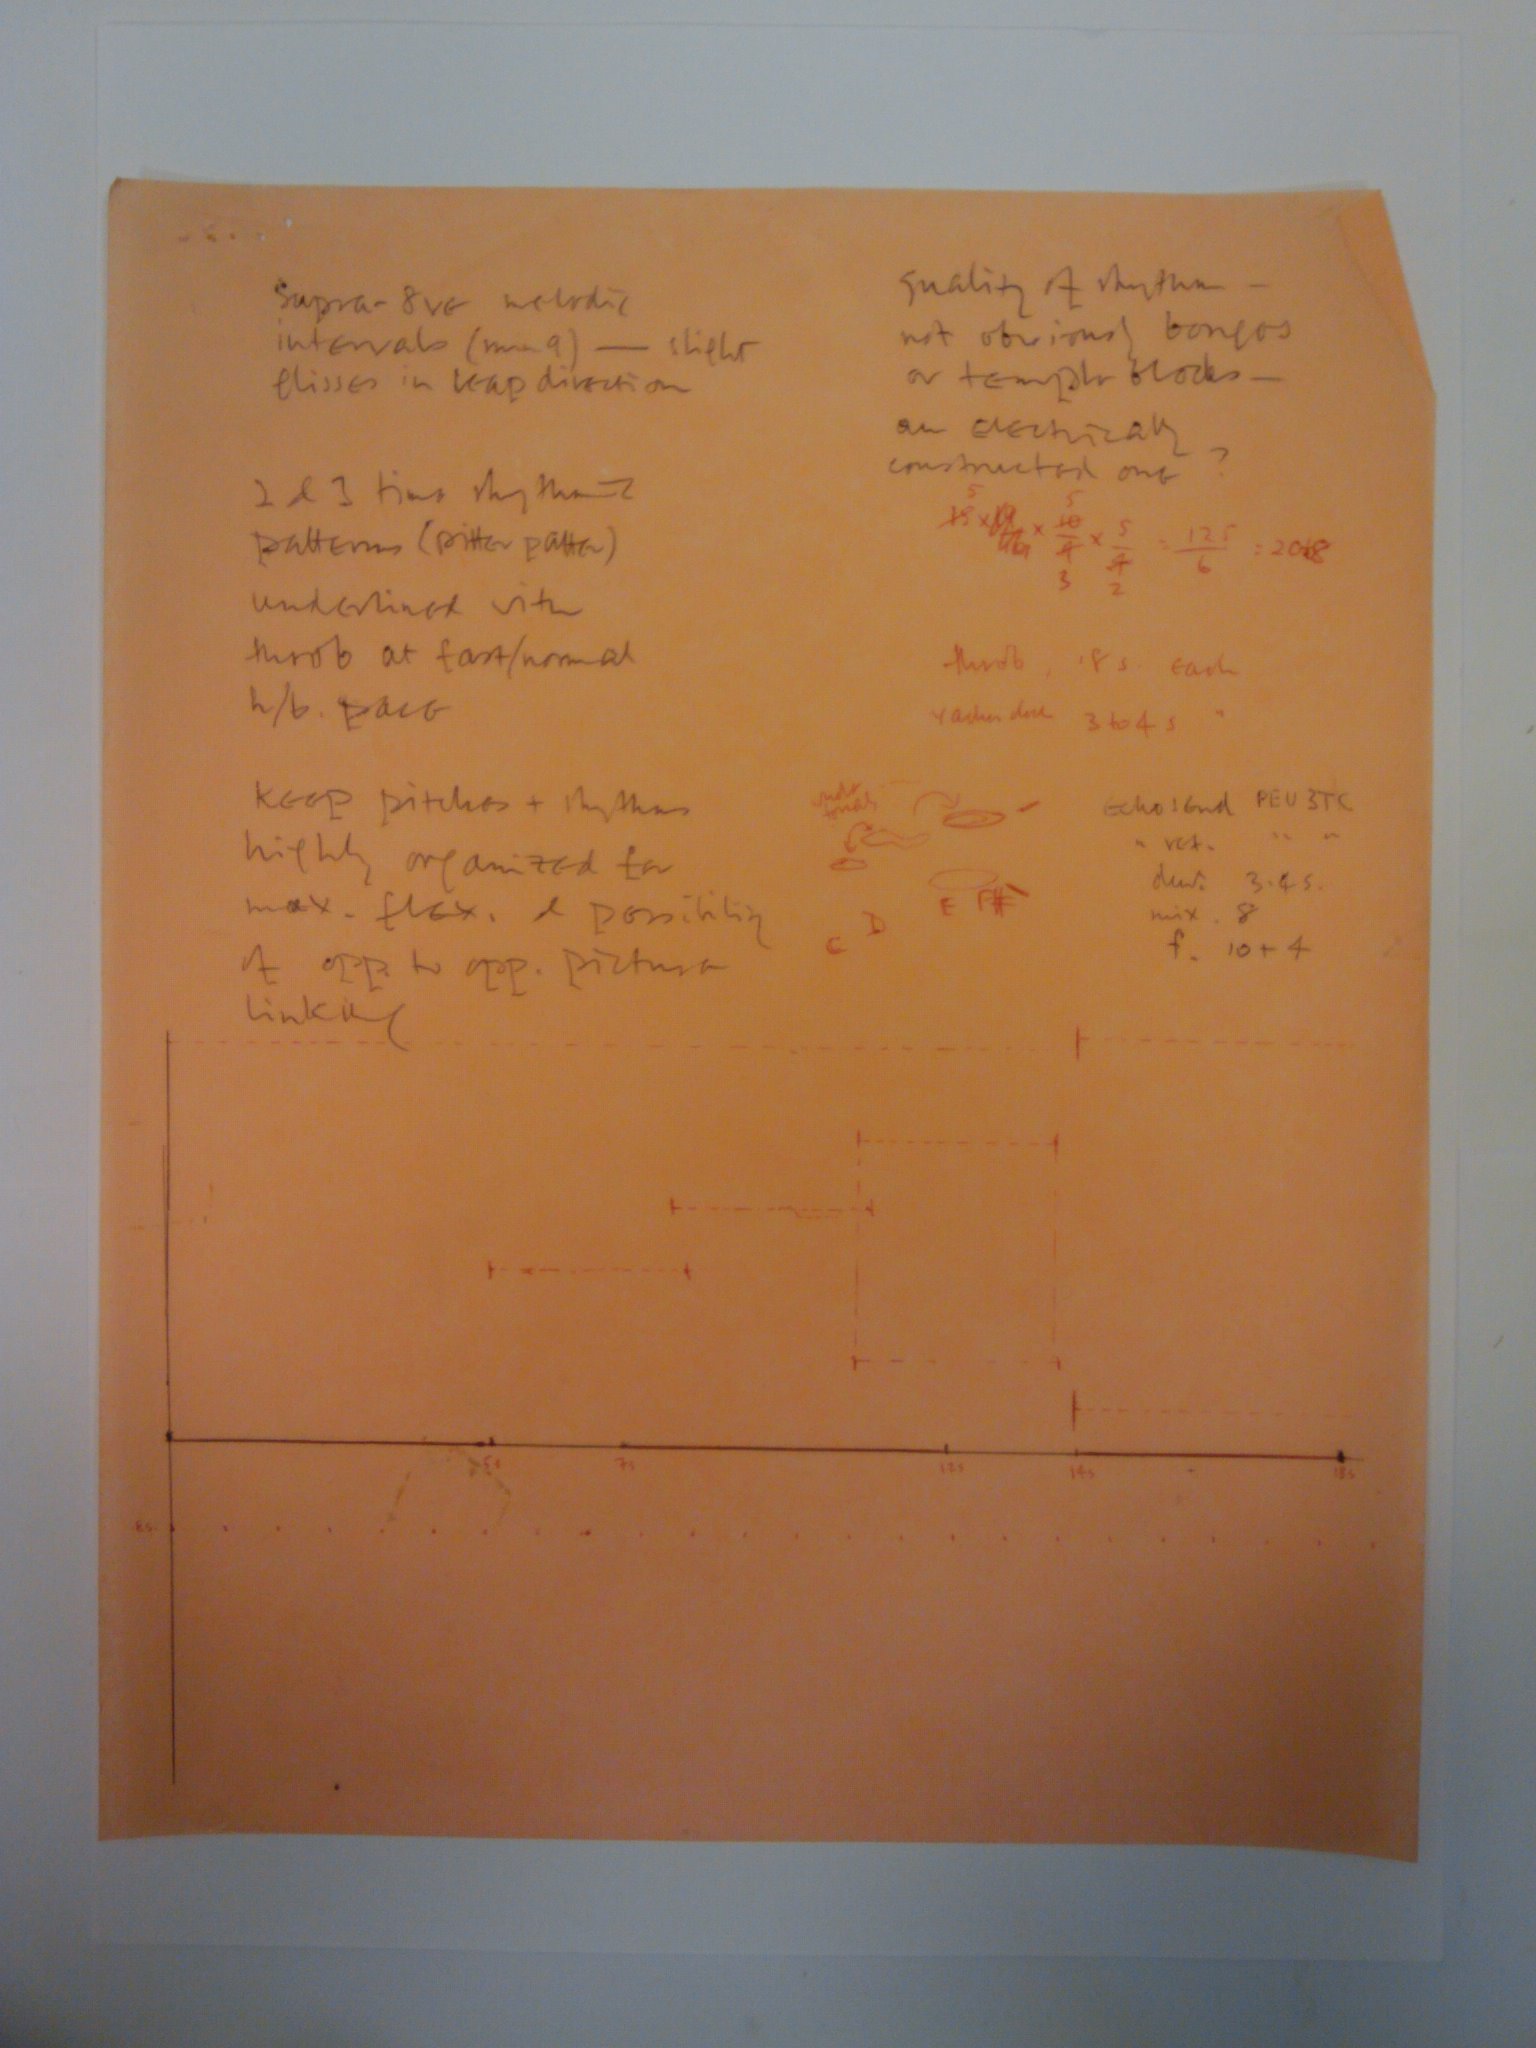 Supra-8ve melodic
intervals (min 9) — slight
glisses in leap direction
2 & 3 time rhythmic
patterns (pitter patter)
underlined with
throb at fast/normal
h/b. pace
keep pitches + rhythms
highly organized for
max. flex. & possibility
of opp. to opp. picture
linking
quality of rhythm —
not obviously bongos
or temple blocks —
an electrically
constructed one ?
5 5
15 × × 10/4 × 5/4 = 125/6 = 20.8
3 2
throb, .8 s. each
3 to 4 s "
C D E F#
Echo send PEU 3TC
" ret. " "
dur. 3.4 s.
mix. 8
f. 10 + 4
5s 7s 12s 14s 18s